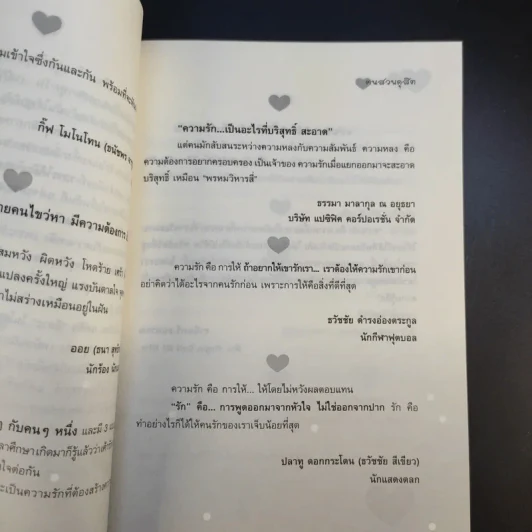 มเข้าใจซึ่งกันและกัน พร้อมที่จะ
กิ๊ฟ โมโนโทน
ายคนไขว่หา มีความต้องการ
สมหวัง ผิดหวัง โหดร้าย
แปลงครั้งใหญ่ แรงบันดาลใจ
าไม่สร้างเหมือนอยู่ในฝัน
ออย (ธนา
นักร้อง
กับคนๆ หนึ่ง และมี
าศึกษาเกิดมาก็รู้แล้วว่า
ใจต่อกัน
ะเป็นความรักที่ต้องสร้าง
คนสวนดุสิต
"ความรัก...เป็นอะไรที่บริสุทธิ์ สะอาด"
แต่คนมักสับสนระหว่างความหลงกับความสัมพันธ์ ความหลง คือ
ความต้องการอยากครอบครอง เป็นเจ้าของ ความรักเมื่อแยกออกมาจะสะอาด
บริสุทธิ์ เหมือน "พรหมวิหารสี่"
ธรรมา มาลากุล ณ อยุธยา
บริษัท แปซิฟิค คอร์ปอเรชั่น จำกัด
ความรัก คือ การให้ ถ้าอยากให้เขารักเรา... เราต้องให้ความรักเขาก่อน
อย่าคิดว่าได้อะไรจากคนรักก่อน เพราะการให้คือสิ่งที่ดีที่สุด
ธวัชชัย ดำรงอ่องตระกูล
นักกีฬาฟุตบอล
ความรัก คือ การให้... ให้โดยไม่หวังผลตอบแทน
"รัก" คือ... การพูดออกมาจากหัวใจ ไม่ใช่ออกจากปาก รัก คือ
ทำอย่างไรก็ได้ให้คนรักของเราเจ็บน้อยที่สุด
ปลาทู ดอกกระโดน (ธวัชชัย สีเขียว)
นักแสดงตลก